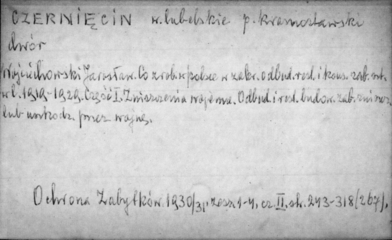 CZERNIĘCIN w. lubelskie p. krasnostawski
dwór
Wojciechowski Jarosław. Co zrobiła Polska w zakr. odbud. rest. i kons. zab. szt.
w l. 1919-1929. Część I. Zniszczenia wojenne. Odbud. i rest. budow. zab. znisz.
lub uszkodz. przez wojnę.
Ochrona Zabytków. 1930/31, zesz. 1-4, cz. II. str. 243-318 (267).